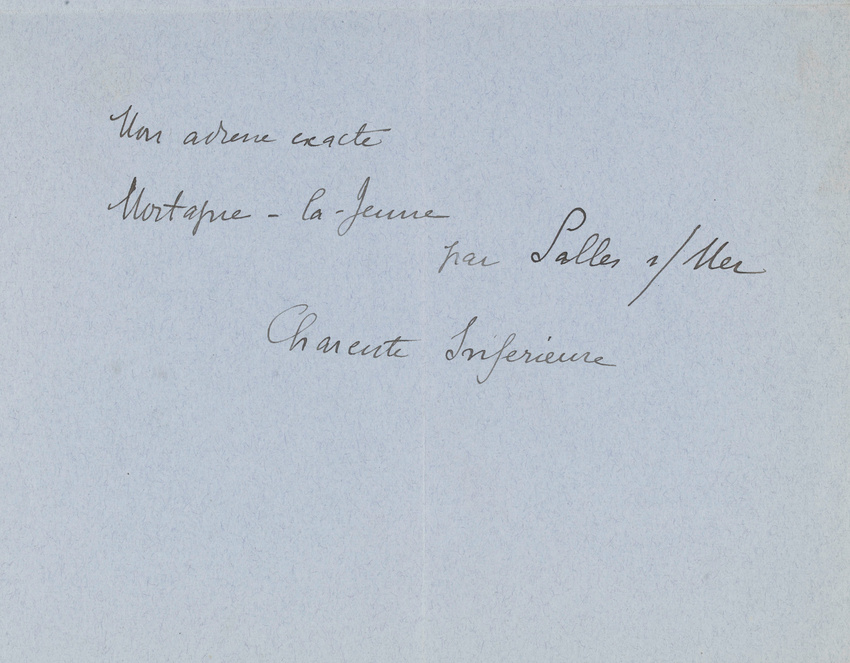 Mon adresse exacte
Mortagne - la - Jeune
par Salles s/ Mer
Charente Inferieure